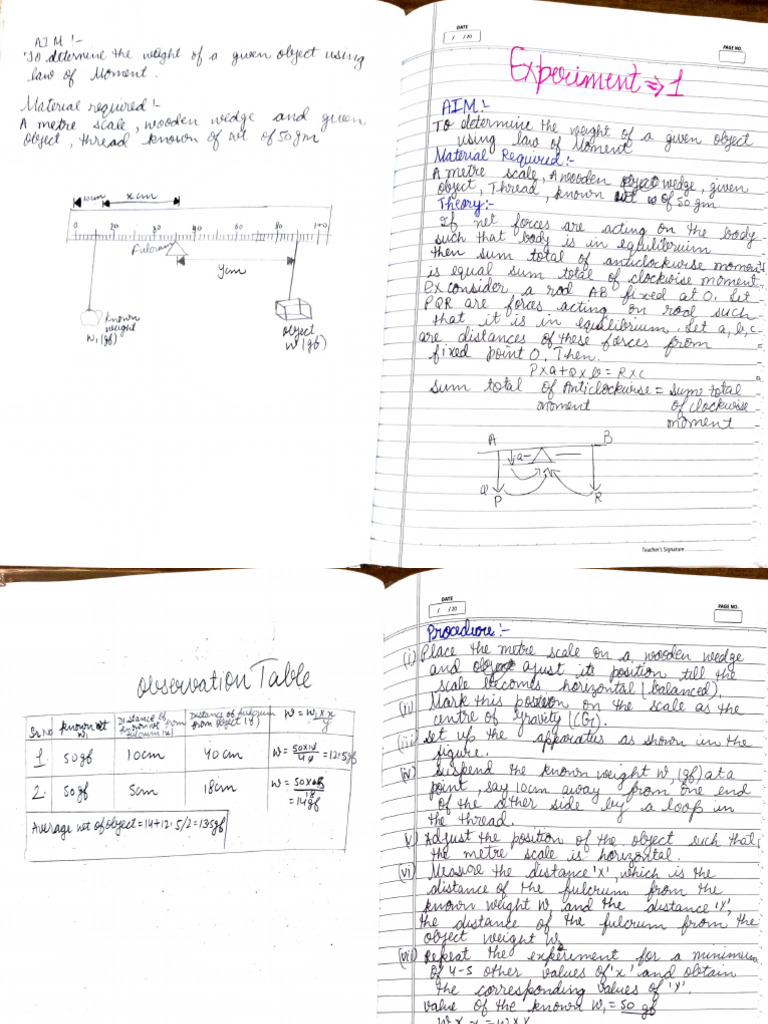 AIM :-
To determine the weight of a given object using
law of Moment.
Material required :-
A metre scale, wooden wedge and given
object, thread known of wt of 50gm
x cm
0 20 30 40 60 80 100
Fulcrum
y cm
known
weight
W₁(gf)
object
W (gf)
DATE
/ /20
PAGE NO.
Experiment ⇒ 1
AIM :-
To determine the weight of a given object
using law of Moment
Material Required :-
A metre scale, A wooden wedge, given
object, Thread, known wt of 50 gm
Theory :-
If net forces are acting on the body
such that body is in equilibrium
then sum total of anticlockwise moment
is equal sum total of clockwise moment
Ex consider a rod AB fixed at O. Let
PQR are forces acting on rod such
that it is in equilibrium. Let a, b, c
are distances of these forces from
fixed point O. Then.
P x a + Q x b = R x c
Sum total of Anticlockwise = Sum total
moment of clockwise
moment
A B
a
Q P R
Teacher's Signature
Observation Table
Sr.No known wt W₁ Distance of known wt from fulcrum (x) Distance of fulcrum from object (y) W = W₁ x x / y
1. 50gf 10cm 40cm W = 50x10/40 = 12.5gf
2. 50gf 5cm 18cm W = 50x5/18 = 14gf
Average wt of object = 14+12.5/2 = 13.5gf
DATE
/ /20
PAGE NO.
Procedure :-
(i) Place the metre scale on a wooden wedge
and ajust its position till the
scale becomes horizontal (balanced).
(ii) Mark this position on the scale as the
centre of gravity (G).
(iii) Set up the apparatus as shown in the
figure.
(iv) Suspend the known weight W₁ (gf) at a
point, say 10cm away from one end
of the other side by a loop in
the thread.
v) Adjust the position of the object such that
the metre scale is horizontal.
(vi) Measure the distance 'x', which is the
distance of the fulcrum from the
known weight W, and the distance 'Y',
the distance of the fulcrum from the
object weight W₂
(vii) Repeat the experiment for a minimum
of 4-5 other values of 'x' and obtain
the corresponding values of 'y'.
value of the known W₁ = 50 gf